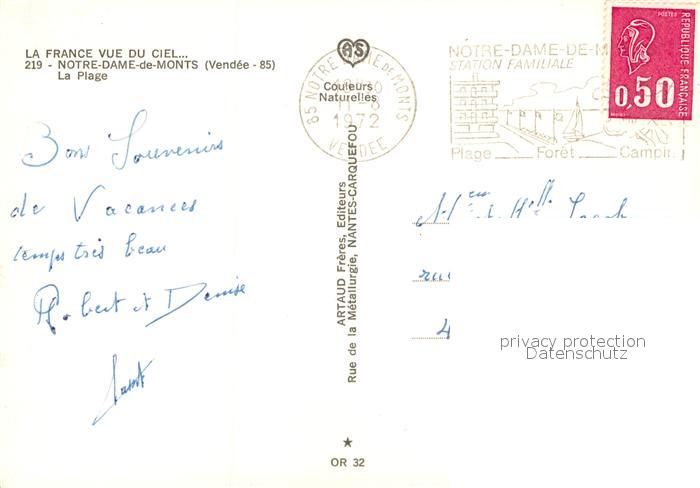 LA FRANCE VUE DU CIEL...
219 - NOTRE-DAME-de-MONTS (Vendée - 85)
La Plage
Bons Souvenirs
de Vacances
temps très beau
Robert et Denise
AS
Couleurs
Naturelles
ARTAUD Frères, Editeurs
Rue de la Métallurgie, NANTES-CARQUEFOU
★
OR 32
85 NOTRE DAME DE MONTS
11-8
1972
VENDEE
NOTRE-DAME-DE-M
STATION FAMILIALE
Plage Forêt Campin
POSTES
REPUBLIQUE FRANÇAISE
0,50
rue
4
privacy protection
Datenschutz